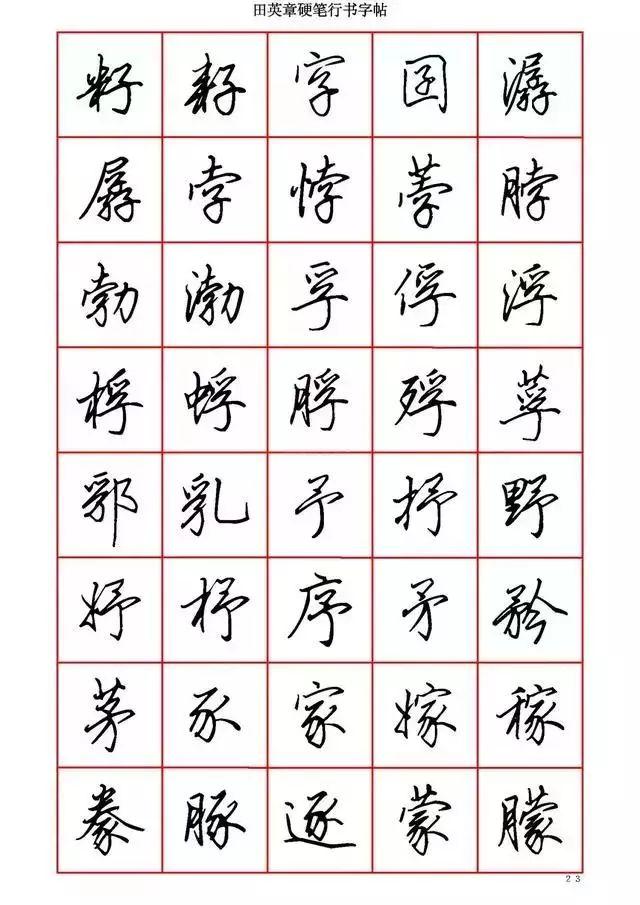 田英章硬笔行书字帖
籽 耔 字 囝 潺
孱 孛 悖 荸 脖
勃 渤 孚 俘 浮
桴 蜉 脬 殍 莩
郛 乳 予 抒 野
妤 杼 序 矛 矜
茅 豕 家 嫁 稼
豢 豚 逐 蒙 朦
23